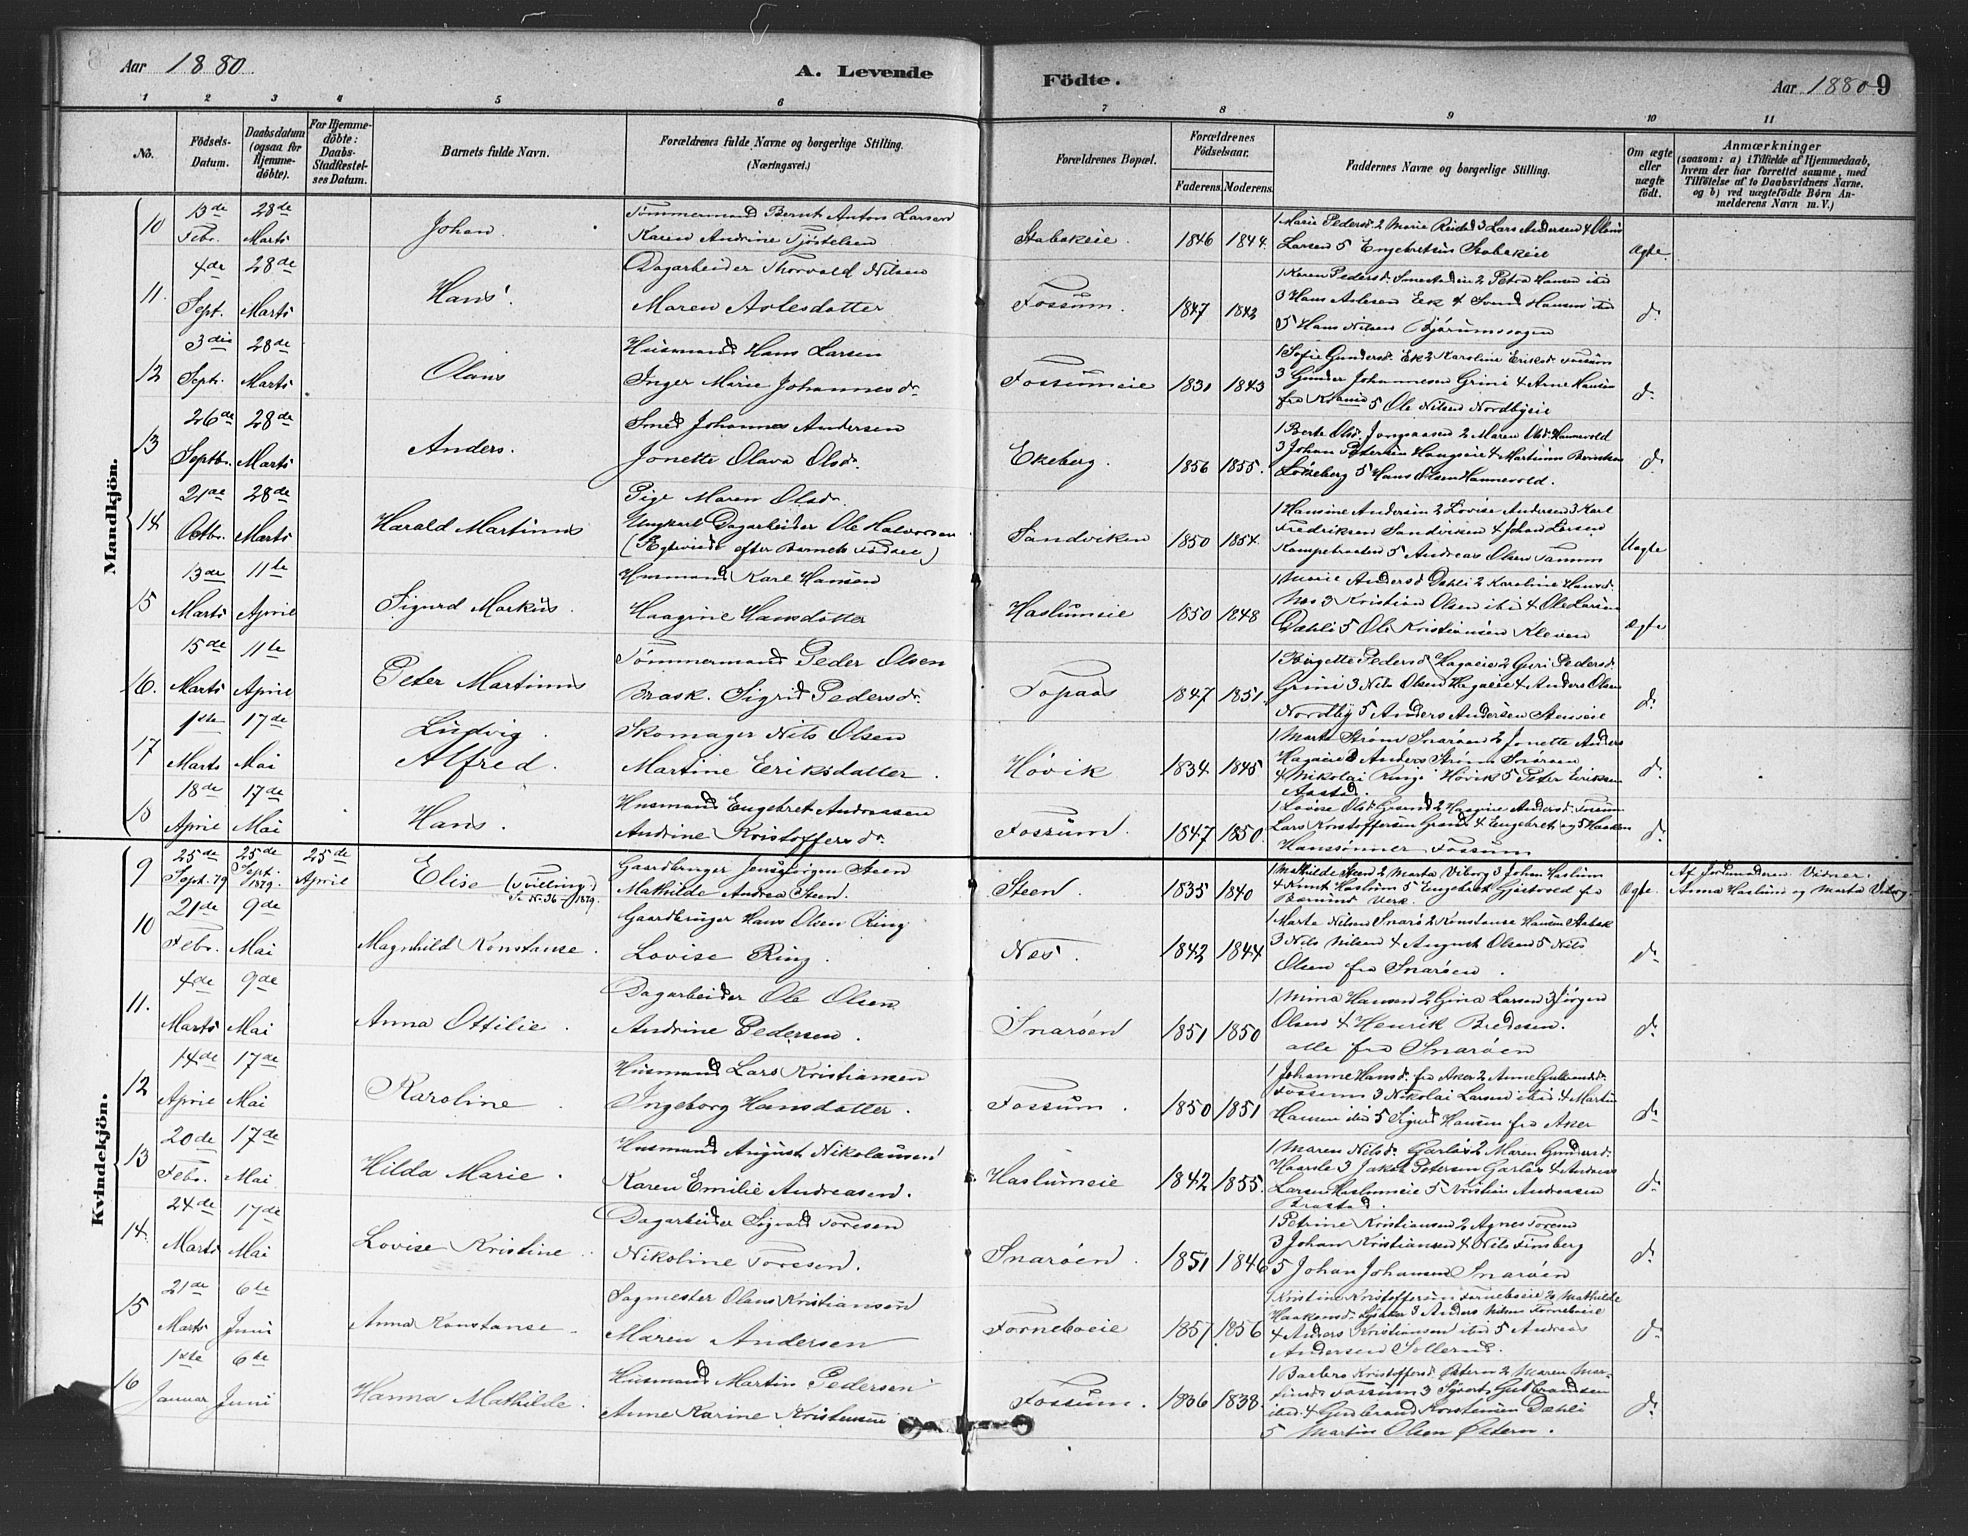 8
Aar 1880.
A. Levende
Födte.
Aar 1880
9
1 2 3 4 5 6 7 8 9 10 11
No.
Födsels-Datum.
Daabsdatum (ogsaa for Hjemmedöbte).
For Hjemmedöbte: Daabs-Stadfæstelses Datum.
Barnets fulde Navn.
Forældrenes fulde Navne og borgerlige Stilling. (Næringsvei.)
Forældrenes Bopæl.
Forældrenes Födselsaar.
Faderens. Moderens.
Faddernes Navne og borgerlige Stilling.
Om ægte eller uægte födt.
Anmærkninger
(saasom: a) i Tilfælde af Hjemmedaab, hvem der har forrettet samme, med Tilföielse af to Daabsvidners Navne, og b) ved uægtefödte Börn Anmelderens Navn m. V.)
Mandkjön.
10 13de Febr. 28de Marts Johan. Tömmermand Bernt Anton Larsen
Karen Andrine Tjöstelsen Stabækeie. 1846 1844. 1 Marie Pedersd. 2 Marie 3 Lars Andersen 4
Larsen 5 Engebretsen Stabækeie Ægte
11. 4de Sept. 28de Marts Hans. Dagarbeider Thorvald Nilsen
Maren Aslesdatter Fossum. 1847 1842 1 Karen Pedersd. Smestadeie 2 Petra Hansen ibid
3 Hans Aslesen Eek 4 Svend Hansen ibid
5 Hans Nilsen Bjørumssagen d.
12 3die Sept. 28de Marts Olaus Husmand Hans Larsen
Inger Marie Johannesd. Fossumeie 1831 1843 1 Sofie Gundersd. Ek 2 Karoline Eriksd. Fossum
3 Gunder Johannesen Grini 4 Arne Hansen
fra 5 Ole Nilsen Nordbyeie d.
13 26de Septbr. 28de Marts Anders. Smed Johannes Andersen
Jonette Olava Olsd. Ekeberg. 1856 1855. 1 Berte Olsd. Jongsaasen 2 Maren Olsd. Hannevold
3 Johan Petersen Haugseie 4 Martinus
Lökeberg 5 Hans Olsen Hannevold. d.
14 21de Octbr. 28de Marts Harald Martinus Pige Maren Olsd.
Ungkarl Dagarbeider Ole Halvorsen
(Egteviede efter Barnets Födsel) Sandviken 1850 1854. 1 Hansine Andersen 2 Lovise Andersen 3 Karl
Fredriksen Sandviken 4 Johan Larsen
5 Andreas Olsen Tanum Uægte
15 13de Marts 11te April Sigurd Markus. Husmand Karl Hansen
Haagine Hansdatter Haslumeie 1850 1848 1 Marie Andersd. Dæhli 2 Karoline Hansd.
Nes 3 Kristian Olsen ibid 4 Ole Larsen
Dæhli 5 Ole Kristiansen Kleven Ægte
16. 15de Marts 11te April Peter Martinus Tömmermand Peder Olsen
Brask. Sigrid Pedersd. Topaas 1847 1851 1 Birgette Pedersd. Hagaeie 2 Guri Pedersd.
Grini 3 Nils Olsen Hagaeie 4 Anders Olsen
Nordby 5 Anders Andersen Steneie d.
17 1ste Marts 17de Mai Ludvig Alfred. Skomager Nils Olsen
Martine Eeriksdatter. Hövik 1834 1845 1 Marte Ström Snaröen 2 Jonette Anders
Hagaeie 3 Anders Ström Snaröen
4 Nikolai Ringi Hövik 5 Peter Eeriksen d.
18 18de April 17de Mai Hans. Husmand Engebret Andreassen
Andrine Kristoffersd. Fossum. 1847 1850. 1 Lovise Olsd. Grand 2 Haagine Andersd. Fossum
Lars Kristoffersen Grand 4 Engebret og 5 Haaken
Hanssönner Fossum d.
Kvindekjön.
9 25de Sept. 79 25de Sept. 1879. 25de April Elise (Tvilling) Se N. 36 - 1879. Gaardbruger Jens Jörgen Steen
Mathilde Andrea Steen. Steen. 1835 1840 1 Mathilde Steen 2 Marta Viborg 3 Johan Haslum
4 Knut Haslum 5 Engebret fra
Bærums Verk. Ægte. Af Jordmoderen. Vidner.
Anna Haslum og Marta Viborg.
10 21de Febr. 9de Mai Magnhild Konstanse. Gaardbruger Hans Olsen Ring
Lovise Ring. Nes. 1842 1844 1 Marte Nilsen Snarö 2 Konstanse Hansen Stabæk
3 Nils Nilsen 4 August Olsen 5 Nils
Olsen fra Snaröen. d.
11. 4de Marts 9de Mai Anna Ottilie. Dagarbeider Ole Olsen
Andrine Pedersen. Snaröen 1851 1850 1 Mina Hansen 2 Gina Larsen 3 Jörgen
Olsen 4 Henrik Bredesen.
alle fra Snaröen d.
12 14de April 17de Mai Karoline. Husmand Lars Kristiansen
Ingeborg Hansdatter. Fossum. 1850 1851 1 Johanne Hansd. fra Aker 2 Anne Gulbrandsd.
Fossum 3 Nikolai Larsen ibid 4 Martin
Hansen ibid 5 Sigurd Hansen fra Aker d.
13 20de Febr. 17de Mai Hilda Marie. Husmand August Nikolausen
Karen Emilie Andreasen. Haslumeie 1842 1855. 1 Maren Nilsd. Garlös 2 Maren Gundersd.
3 Jakob Petersen Garlös 4 Andreas
Larsen Haslumeie 5 Kristian Andreasen
d.
14. 24de Marts 17de Mai Lovise Kristine. Dagarbeider Sigvard Toresen
Nikoline Toresen. Snaröen. 1851 1846 1 Petrine Kristiansen 2 Agnes Toresen
3 Johan Kristiansen 4 Nils Finsberg
5 Johan Johansen Snaröen d.
15 21de Marts 6te Juni Anna Konstanse. Sagmester Olaus Kristiansen
Maren Andersen Forneboeie 1857 1856 1 Kristine Kristoffersen Forneboeie 2 Mathilde
Haakensd. Lysaker 3 Anders Nilsen Forneboeie
4 Anders Kristiansen ibid 5 Andreas
Andersen Sollerud. d.
16 1ste Januar 6te Juni Hanna Mathilde. Husmand Martin Pedersen
Anne Karine Kristensen Fossum. 1836 1838. 1 Barbro Kristoffersd. Østern 2 Maren Mar-
tinsd. Fossum 3 Syvert Gulbrandsen
ibid 4 Gulbrand Kristensen Dæhli
5 Martin Olsen Østern. d.